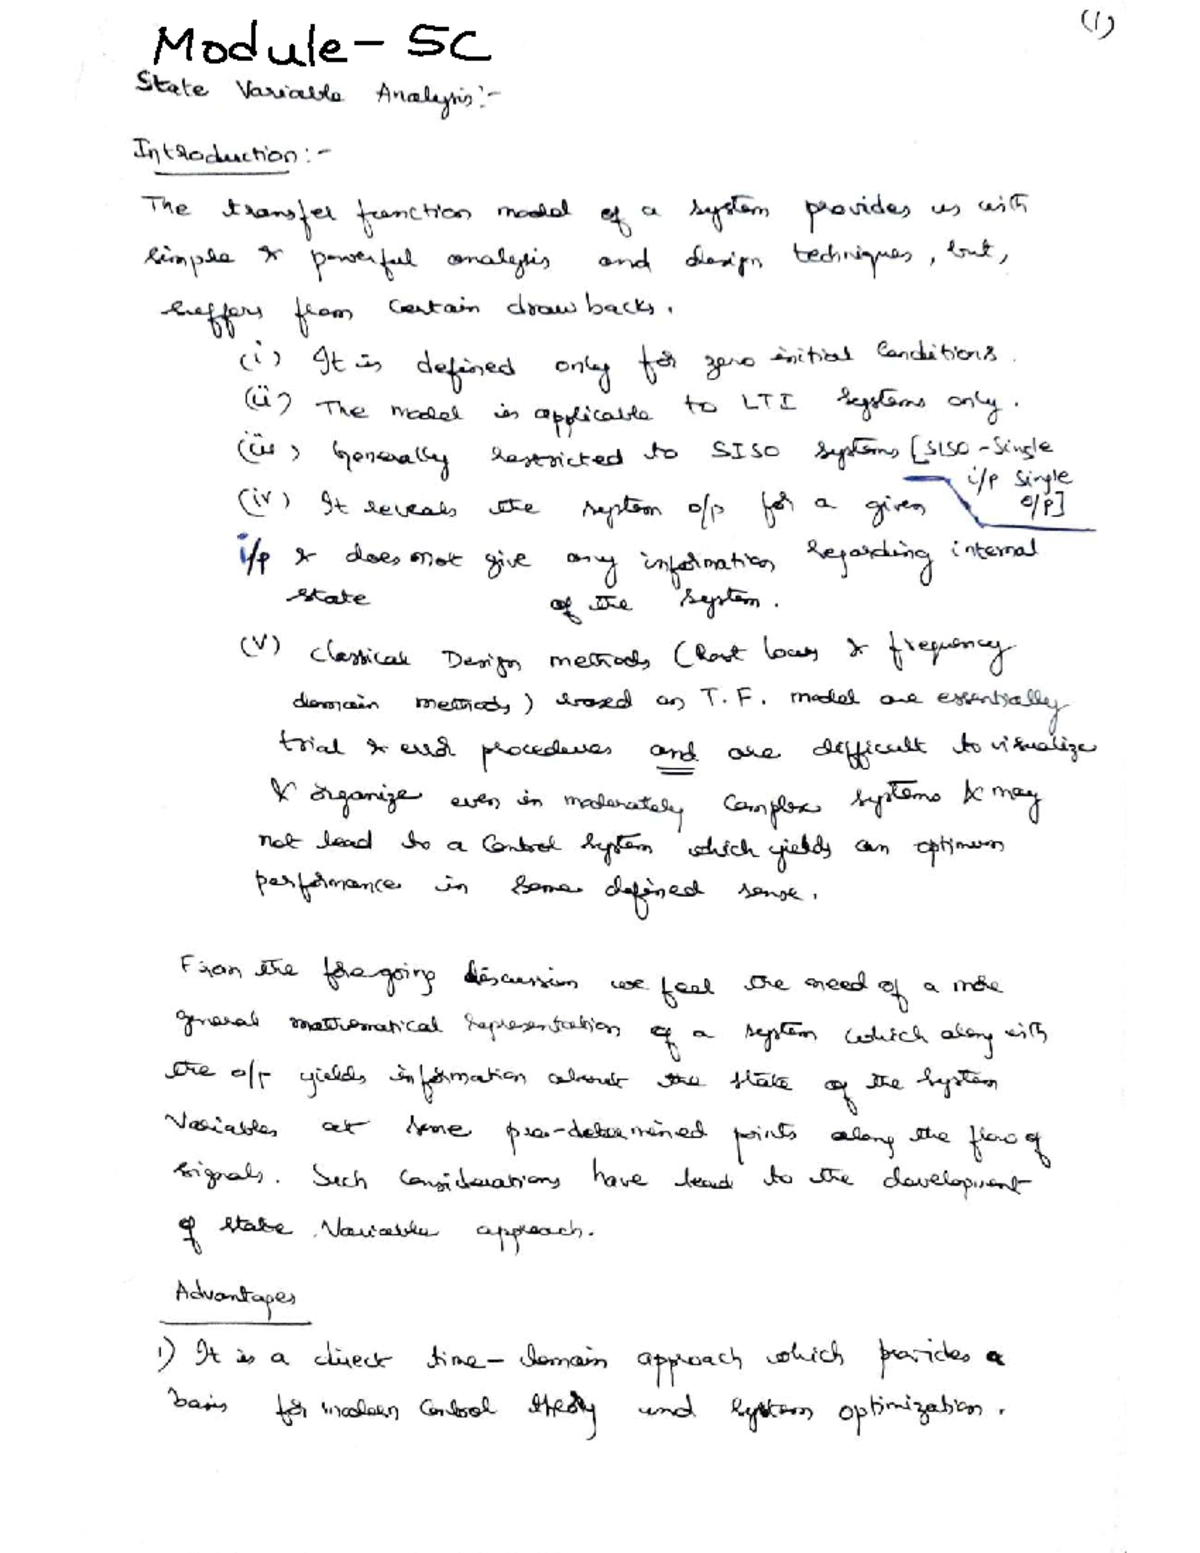 (1)
Module - 5C
State Variable Analysis:-
Introduction:-
The transfer function model of a system provides us with
simple & powerful analysis and design techniques, but,
suffers from certain drawbacks.
(i) It is defined only for zero initial conditions.
(ii) The model is applicable to LTI systems only.
(iii) Generally restricted to SISO systems [SISO - Single
i/p Single
o/p]
(iv) It reveals the system o/p for a given
i/p & does not give any information regarding internal
state of the system.
(v) Classical Design methods (Root locus & frequency
domain methods) based on T.F. model are essentially
trial & error procedures and are difficult to visualize
& organize even in moderately complex systems & may
not lead to a control system which yields an optimum
performance in some defined sense.
From the foregoing discussion we feel the need of a more
general mathematical representation of a system which along with
the o/p yields information about the state of the system
variables at some pre-determined points along the flow of
signals. Such considerations have lead to the development
of state variable approach.
Advantages
1) It is a direct time-domain approach which provides a
basis for modern control theory and system optimization.